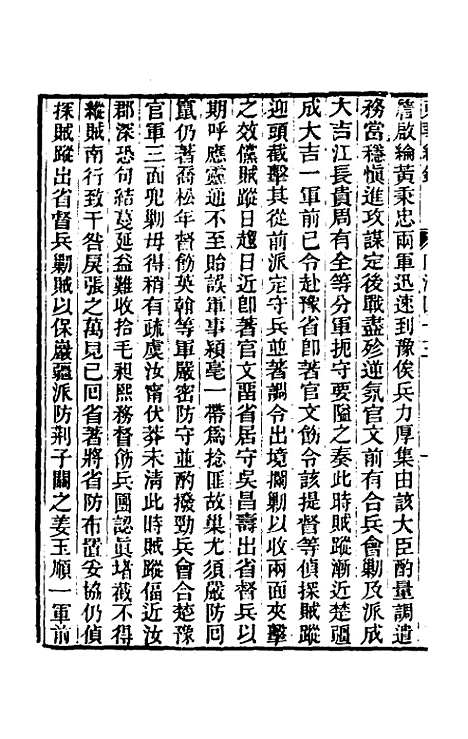 詹啟綸黃秉忠兩軍迅速到豫俟兵力厚集由該大臣酌量調遣
務當穩愼進攻謀定後戰盡殄逆氛官文前有合兵會勦及派成
大吉江長貴周有全等分軍扼守要隘之奏此時賊蹤漸近楚疆
成大吉一軍前已令赴豫省卽著官文飭令該提督等偵探賊蹤
迎頭截擊其從前派定守兵並著調令出境攔勦以收兩面夾擊
之效儻賊蹤日趨日近卽著官文留省居守吳昌壽出省督兵以
期呼應靈通不至貽誤軍事潁亳一帶爲捻匪故巢尤須嚴防回
竄仍著喬松年督飭英翰等軍嚴密防守並酌撥勁兵會合楚豫
官軍三面兜勦毋得稍有疏虞汝甯伏莽未清此時賊蹤偪近汝
郡深恐句結蔓延益難收拾毛昶熙務督飭兵團認眞堵截不得
縱賊南行致干咎戾張之萬見已回省著將省防布置妥協仍偵
探賊蹤出省督兵勦賊以保巖疆派防荆子關之姜玉順一軍前